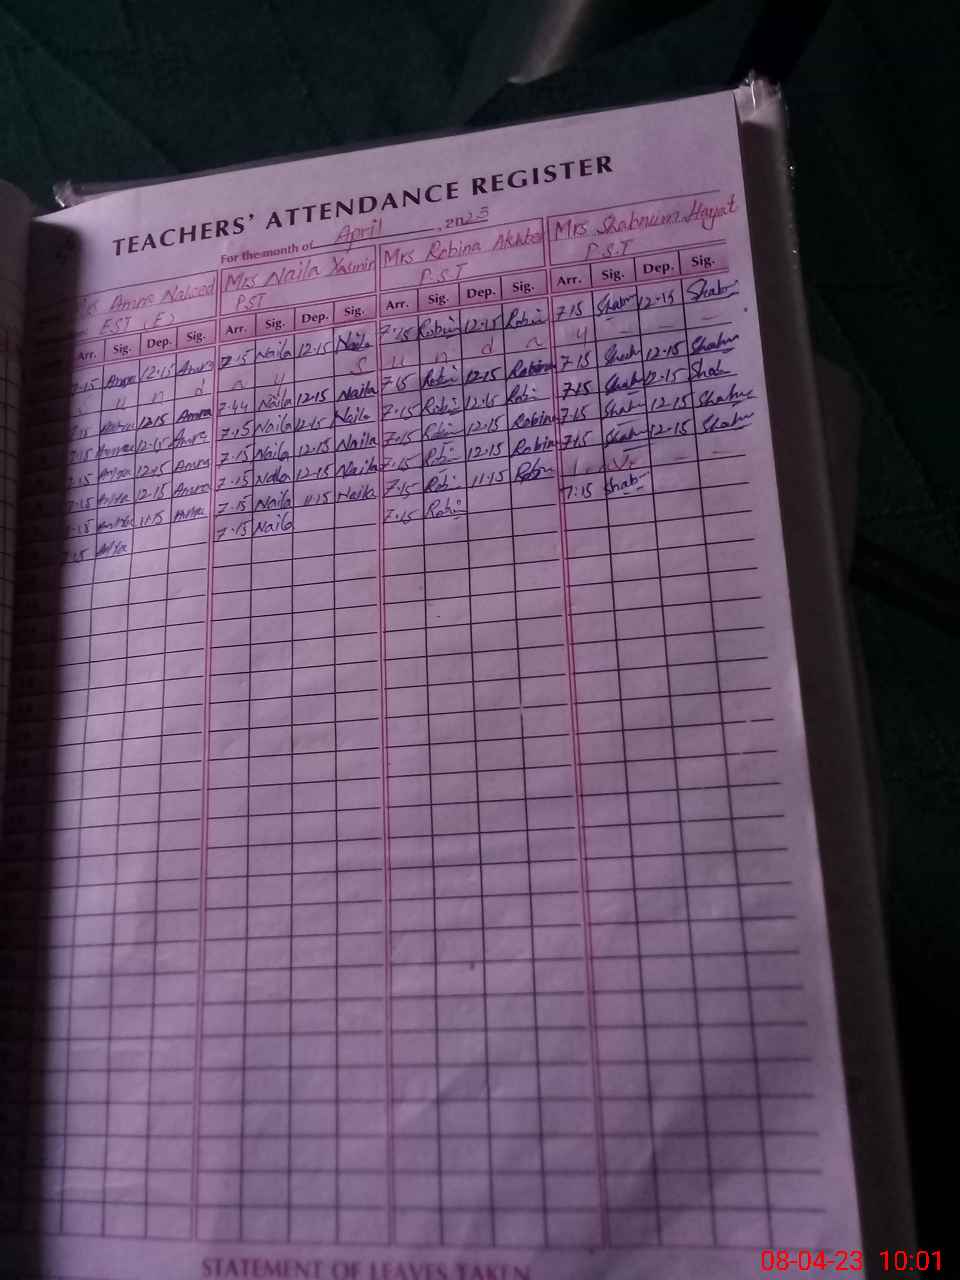 TEACHERS' ATTENDANCE REGISTER
For the month of April, 2023
Amna Naveed Mrs Naila Yasmin Mrs Robina Akhter Mrs Shabnum Hayat
EST (E) PST P.S.T P.S.T
Arr. Sig. Dep. Sig. Arr. Sig. Dep. Sig. Arr. Sig. Dep. Sig. Arr. Sig. Dep. Sig.
7.15 Amna 12.15 Amna 7.15 Naila 12.15 Naila 7.15 Robina 12.15 Robina 7.15 Shabn 12.15 Shabn
S u n d a y S u n d a y — — —
7.15 12.15 Amna 7.44 Naila 12.15 Naila 7.15 Robi 12.15 Robina 7.15 Shab 12.15 Shabn
7.15 12.15 Amna 7.15 Naila 12.15 Naila 7.15 Robi 12.15 Robi 7.15 Shab 12.15 Shab
7.15 Amna 12.15 Amna 7.15 Naila 12.15 Naila 7.15 Robi 12.15 Robina 7.15 Shab 12.15 Shabn
7.15 Amna 12.15 Amna 7.15 Naila 12.15 Naila 7.15 Robi 12.15 Robin 7.15 Shabn 12.15 Shabn
7.15 Amna 11.15 Amna 7.15 Naila 11.15 Naila 7.15 Robi 11.15 Robin Leave — —
7.15 Amna 7.15 Naila 7.15 Robin 7:15 Shab
STATEMENT OF LEAVES TAKEN
08-04-23 10:01